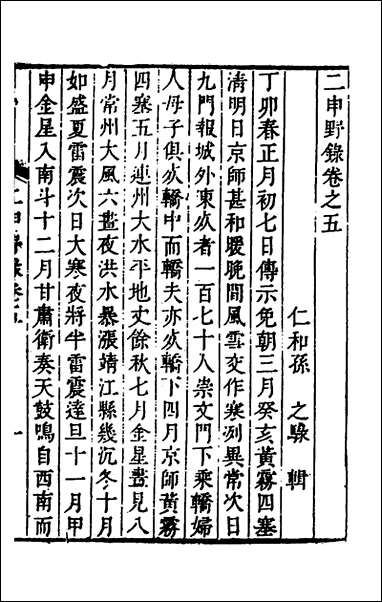 二申野錄卷之五
仁和孫 之騄 輯
丁卯春正月初七日傳示免朝三月癸亥黃霧四塞
清明日京師甚和暖晚間風雲交作寒冽異常次日
九門報城外凍死者一百七十人崇文門下乘轎婦
人母子俱死轎中而轎夫亦死轎下四月京師黃霧
四塞五月連州大水平地丈餘秋七月金星晝見八
月常州大風六晝夜洪水暴漲靖江縣幾沉冬十月
如盛夏雷震次日大寒夜將半雷震達旦十一月甲
申金星入南斗十二月甘肅衛奏天鼓鳴自西南而
二申野錄卷五
一